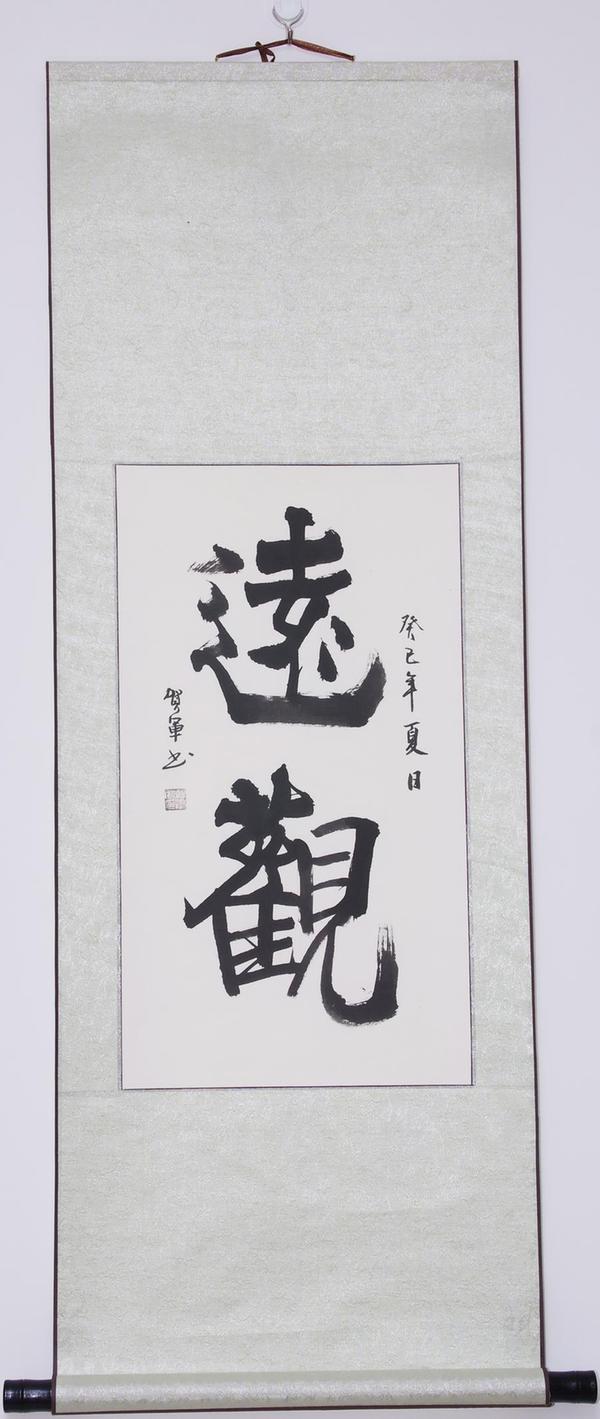 癸巳年夏日
遠觀
賀軍书